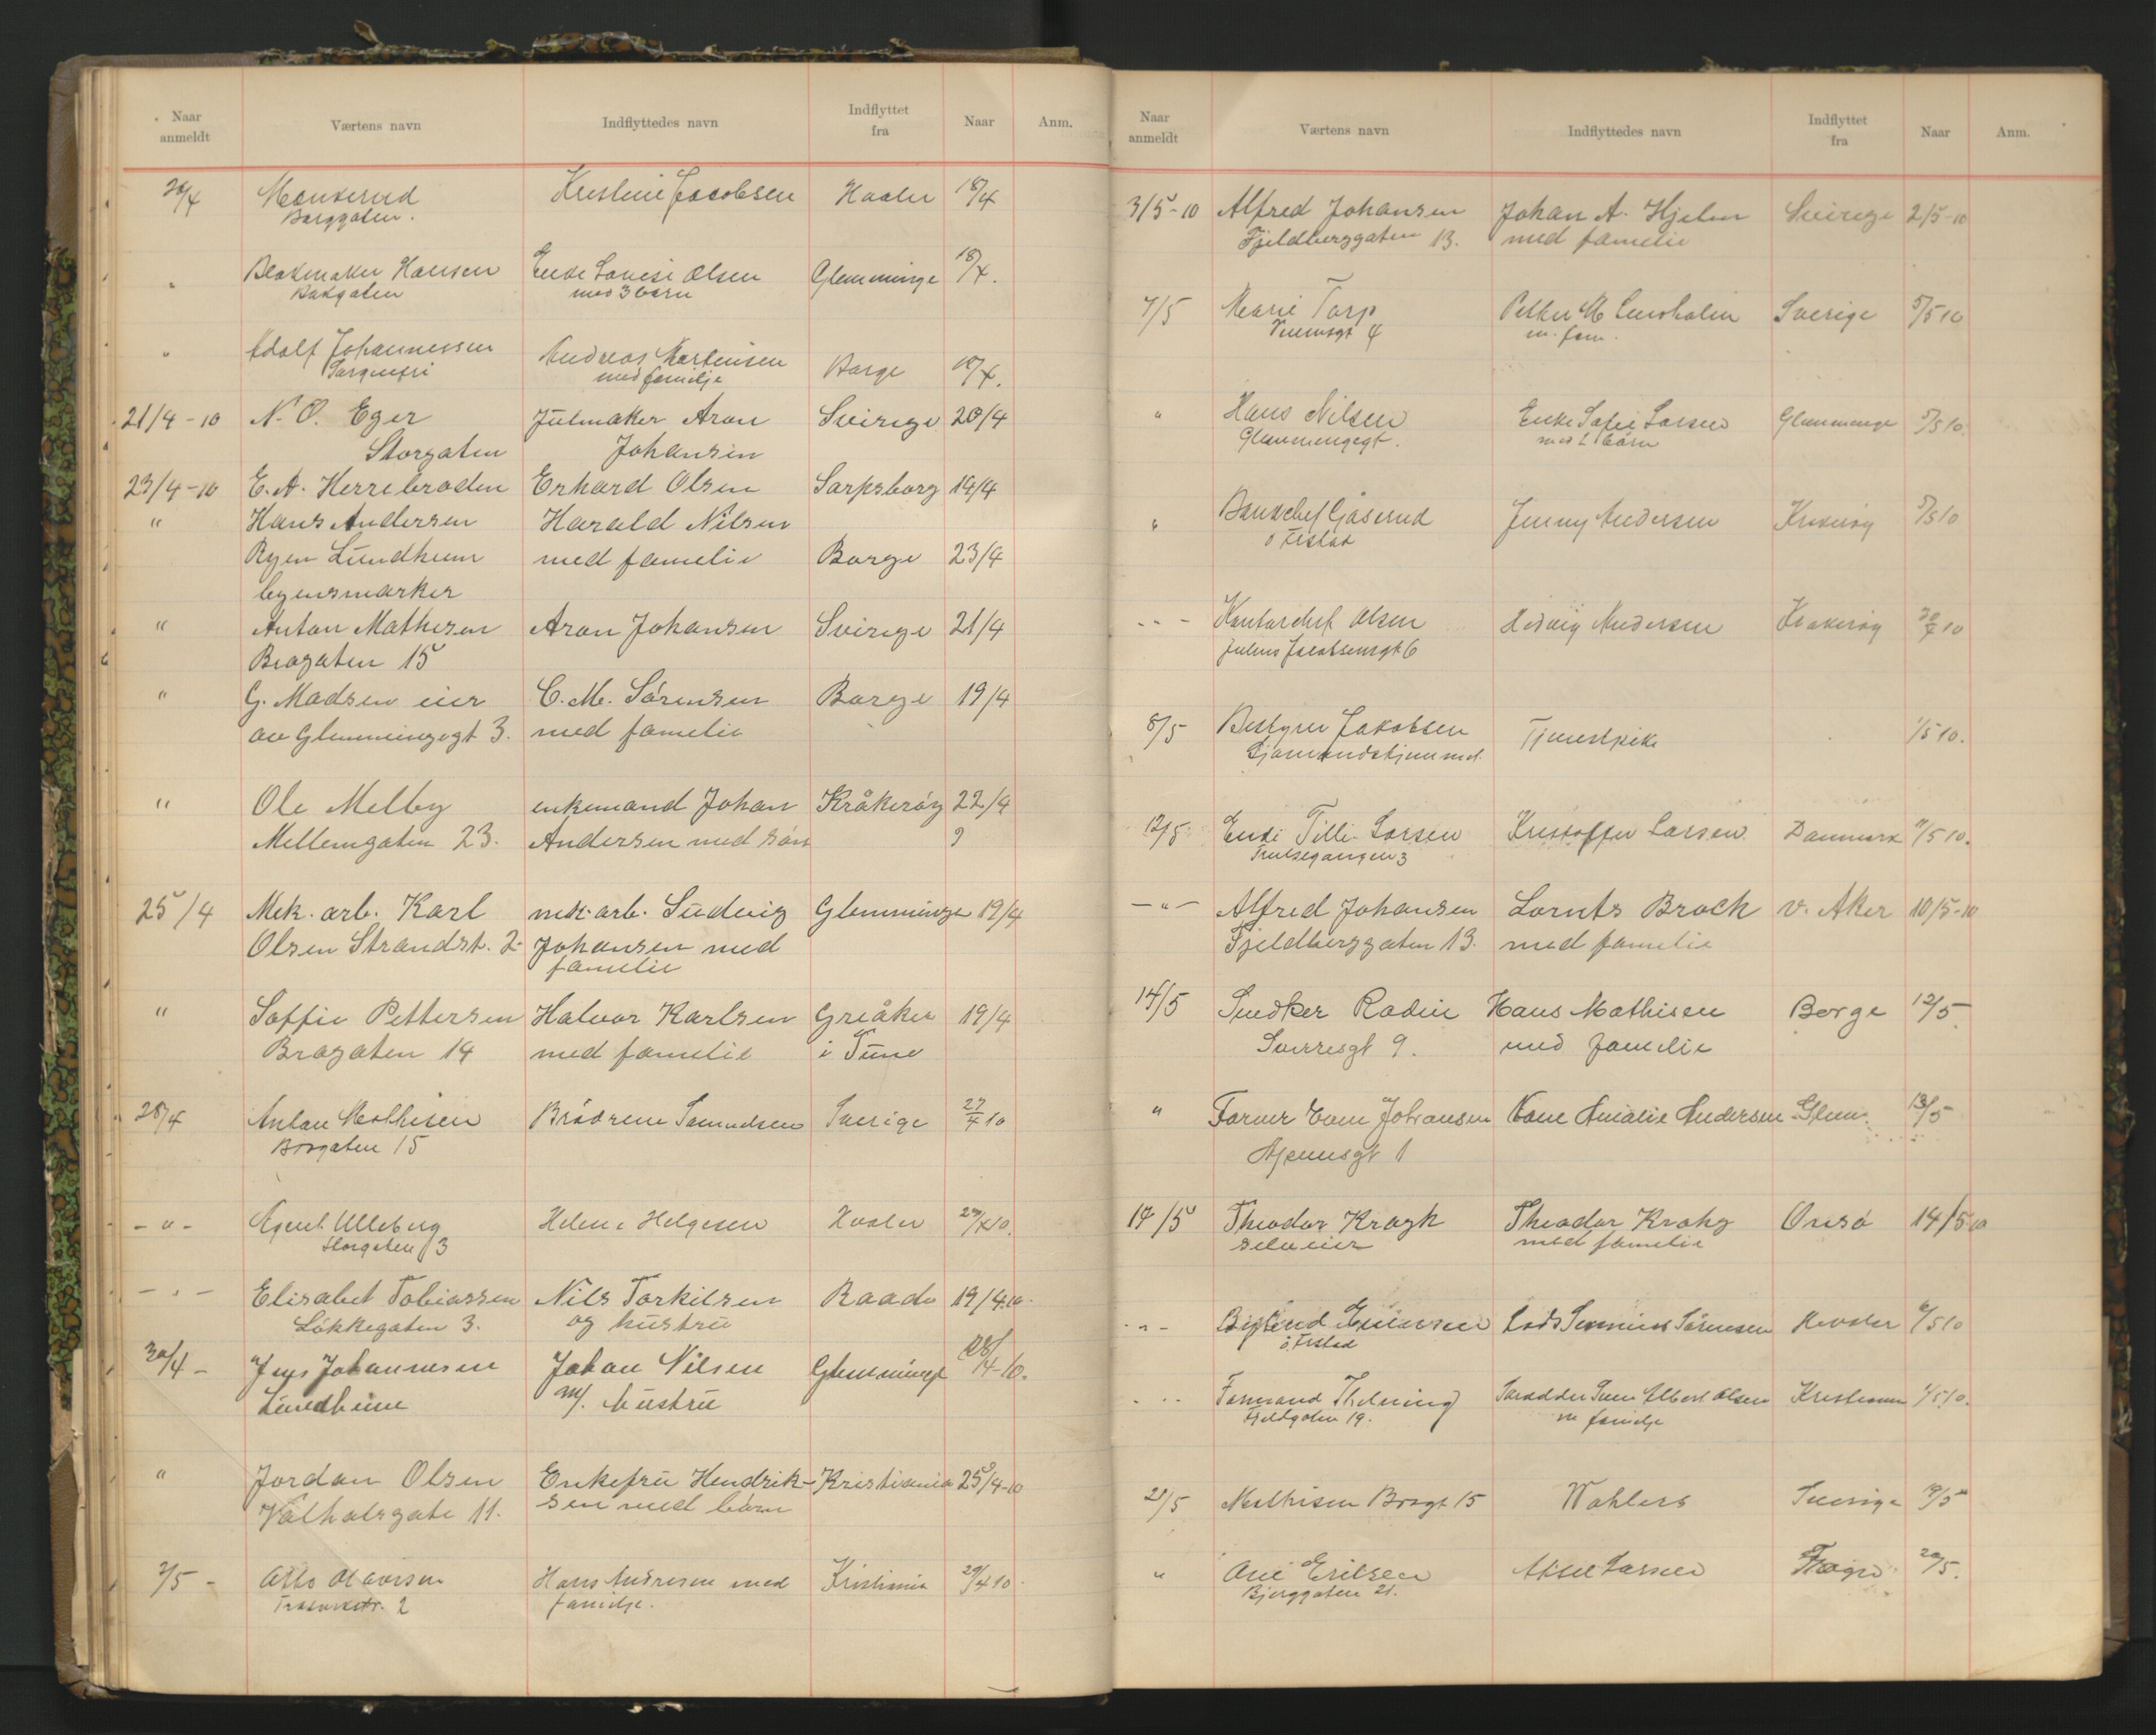 Naar anmeldt Værtens navn Indflyttedes navn Indflyttet fra Naar Anm.
20/4 Monserud Kristine Jacobsen Hvaler 18/4
Borggaten.
" Blokmaker Hansen Enke Lovise Olsen Glemminge 18/4.
Bakgaten med 3 børn
" Adolf Johannessen Andreas Martinsen Borge 19/4.
Sorgenfri med familje
21/4-10 N. O. Eger Julmaker Aron Sverige 20/4
Storgaten Johansen
23/4-10 E. A. Herrebrøden Erhard Olsen Sarpsborg 14/4
" Hans Andersen Harald Nilsen
Ryen Lundheim med familie Borge 23/4
byensmarker
" Anton Mathesen Aron Johansen Sverige 21/4
Brogaten 15
" G. Madsen eier C. M. Sørensen Borge 19/4
av Glemmingegt 3. med familie
" Ole Melby enkemand Johan Kråkerøy 22/4
Mellemgaten 23. Andersen med søn
25/4 Mek. arb. Karl mek. arb. Ludvig Glemminge 19/4
Olsen Strandst. 2 Johansen med
familie
" Soffie Pettersen Halvor Karlsen Greåker 19/4
Brogaten 14 med familie i Tune
28/4 Anton Mathisen Brødrene Samuelsen Sverige 27/4 10
Brogaten 15
- " - Agent Ulleberg Helene Helgesen Hvaler 27/4 10.
Storgaten 3
- " - Elisabet Tobiassen Nils Torkilsen Raade 19/4.10.
Løkkegaten 3. og hustru
30/4 - Jens Johannesen Johan Nilsen Glemminge 28/4-10.
Lundheim m/. hustru
" Jordan Olsen Enkefru Hendrik- Kristiania 25/4-10
Valhalsgate 11. sen med børn
2/5 - Otto Olavesen Hans Andresen med Kristiania 29/4 10.
2 familje.
Naar anmeldt Værtens navn Indflyttedes navn Indflyttet fra Naar Anm.
3/5-10 Alfred Johansen Johan A. Hjelm Sverige 2/5-10
Fjeldberggaten 13. med familie
4/5 Marie Torp Petter M Sverige 5/5 10
4 m. fam.
" Hans Nilsen Enke Sofie Larsen Glemminge 5/5 10.
Glemmengegt. børn
" Gåserud Jenny Andersen Krakerøy 5/5 10
ø Fistad
- " - Kontorchef Olsen Hedvig Andersen Krakerøy 30/4 10
Julius Jacobsensgt 6
8/5 Bestyrer Jakobsen Tjenestpike 1/5 10.
Sjømandshjemmet.
12/5. Enke Tilli Larsen Kristoffer Larsen Danmark 11/5 10.
Trulsegangen 3
- " - Alfred Johansen Lornts Brock v. Aker 10/5-10
Fjeldberggaten 13. med familie
14/5 Snedker Rodin Hans Mathisen Borge 12/5
Sverresgt 9. med familie
" Former Johansen Amalie Andersen Glem. 13/5
1
14/5 Theodor Kragh Theodor Krohg Onsø 14/5 10
selveier med familie
- " - Lods Sørensen Hvaler 6/5 10
ø. Fistad
- " - Formand Thelning Albert Olsen Kristiania 1/5 10.
Fjeldgaten 19. m familje
21/5 Mathisen Brogt 15 Wahlers Sverige 19/5
" Eriksen Larsen 20/5.
Bjerggaten 21.